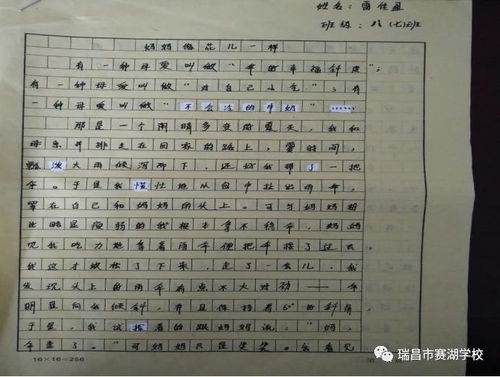 姓名：雷佳盈
班级：八（七）班
妈妈像花儿一样
有一种母爱叫做“伞的幸福斜度”；
有一种母爱叫做“对自己小气”；有
一种母爱叫做“不会冷的牛奶”……
那是一个阴晴多变的夏天，我和
母亲并排走在回家的路上，霎时间，
瓢泼大雨倾泻而下，还好我带了一把
伞。于是我慌忙地从包中扯出雨伞，
罩在自己和妈妈的头上。可与妈妈相
比略显瘦弱的我根本拿不稳伞，妈妈
见我吃力地拿着雨伞便把伞接了过去
我这才放松了下来，走了一会儿，我
发现头上的雨伞有点不大对劲——伞
明显向我倾斜，并且保持着60°的斜角
于是，我边走着的跟妈妈说：“妈，
伞歪了。”可妈妈只是笑笑。
16×16=256
瑞昌市赛湖学校